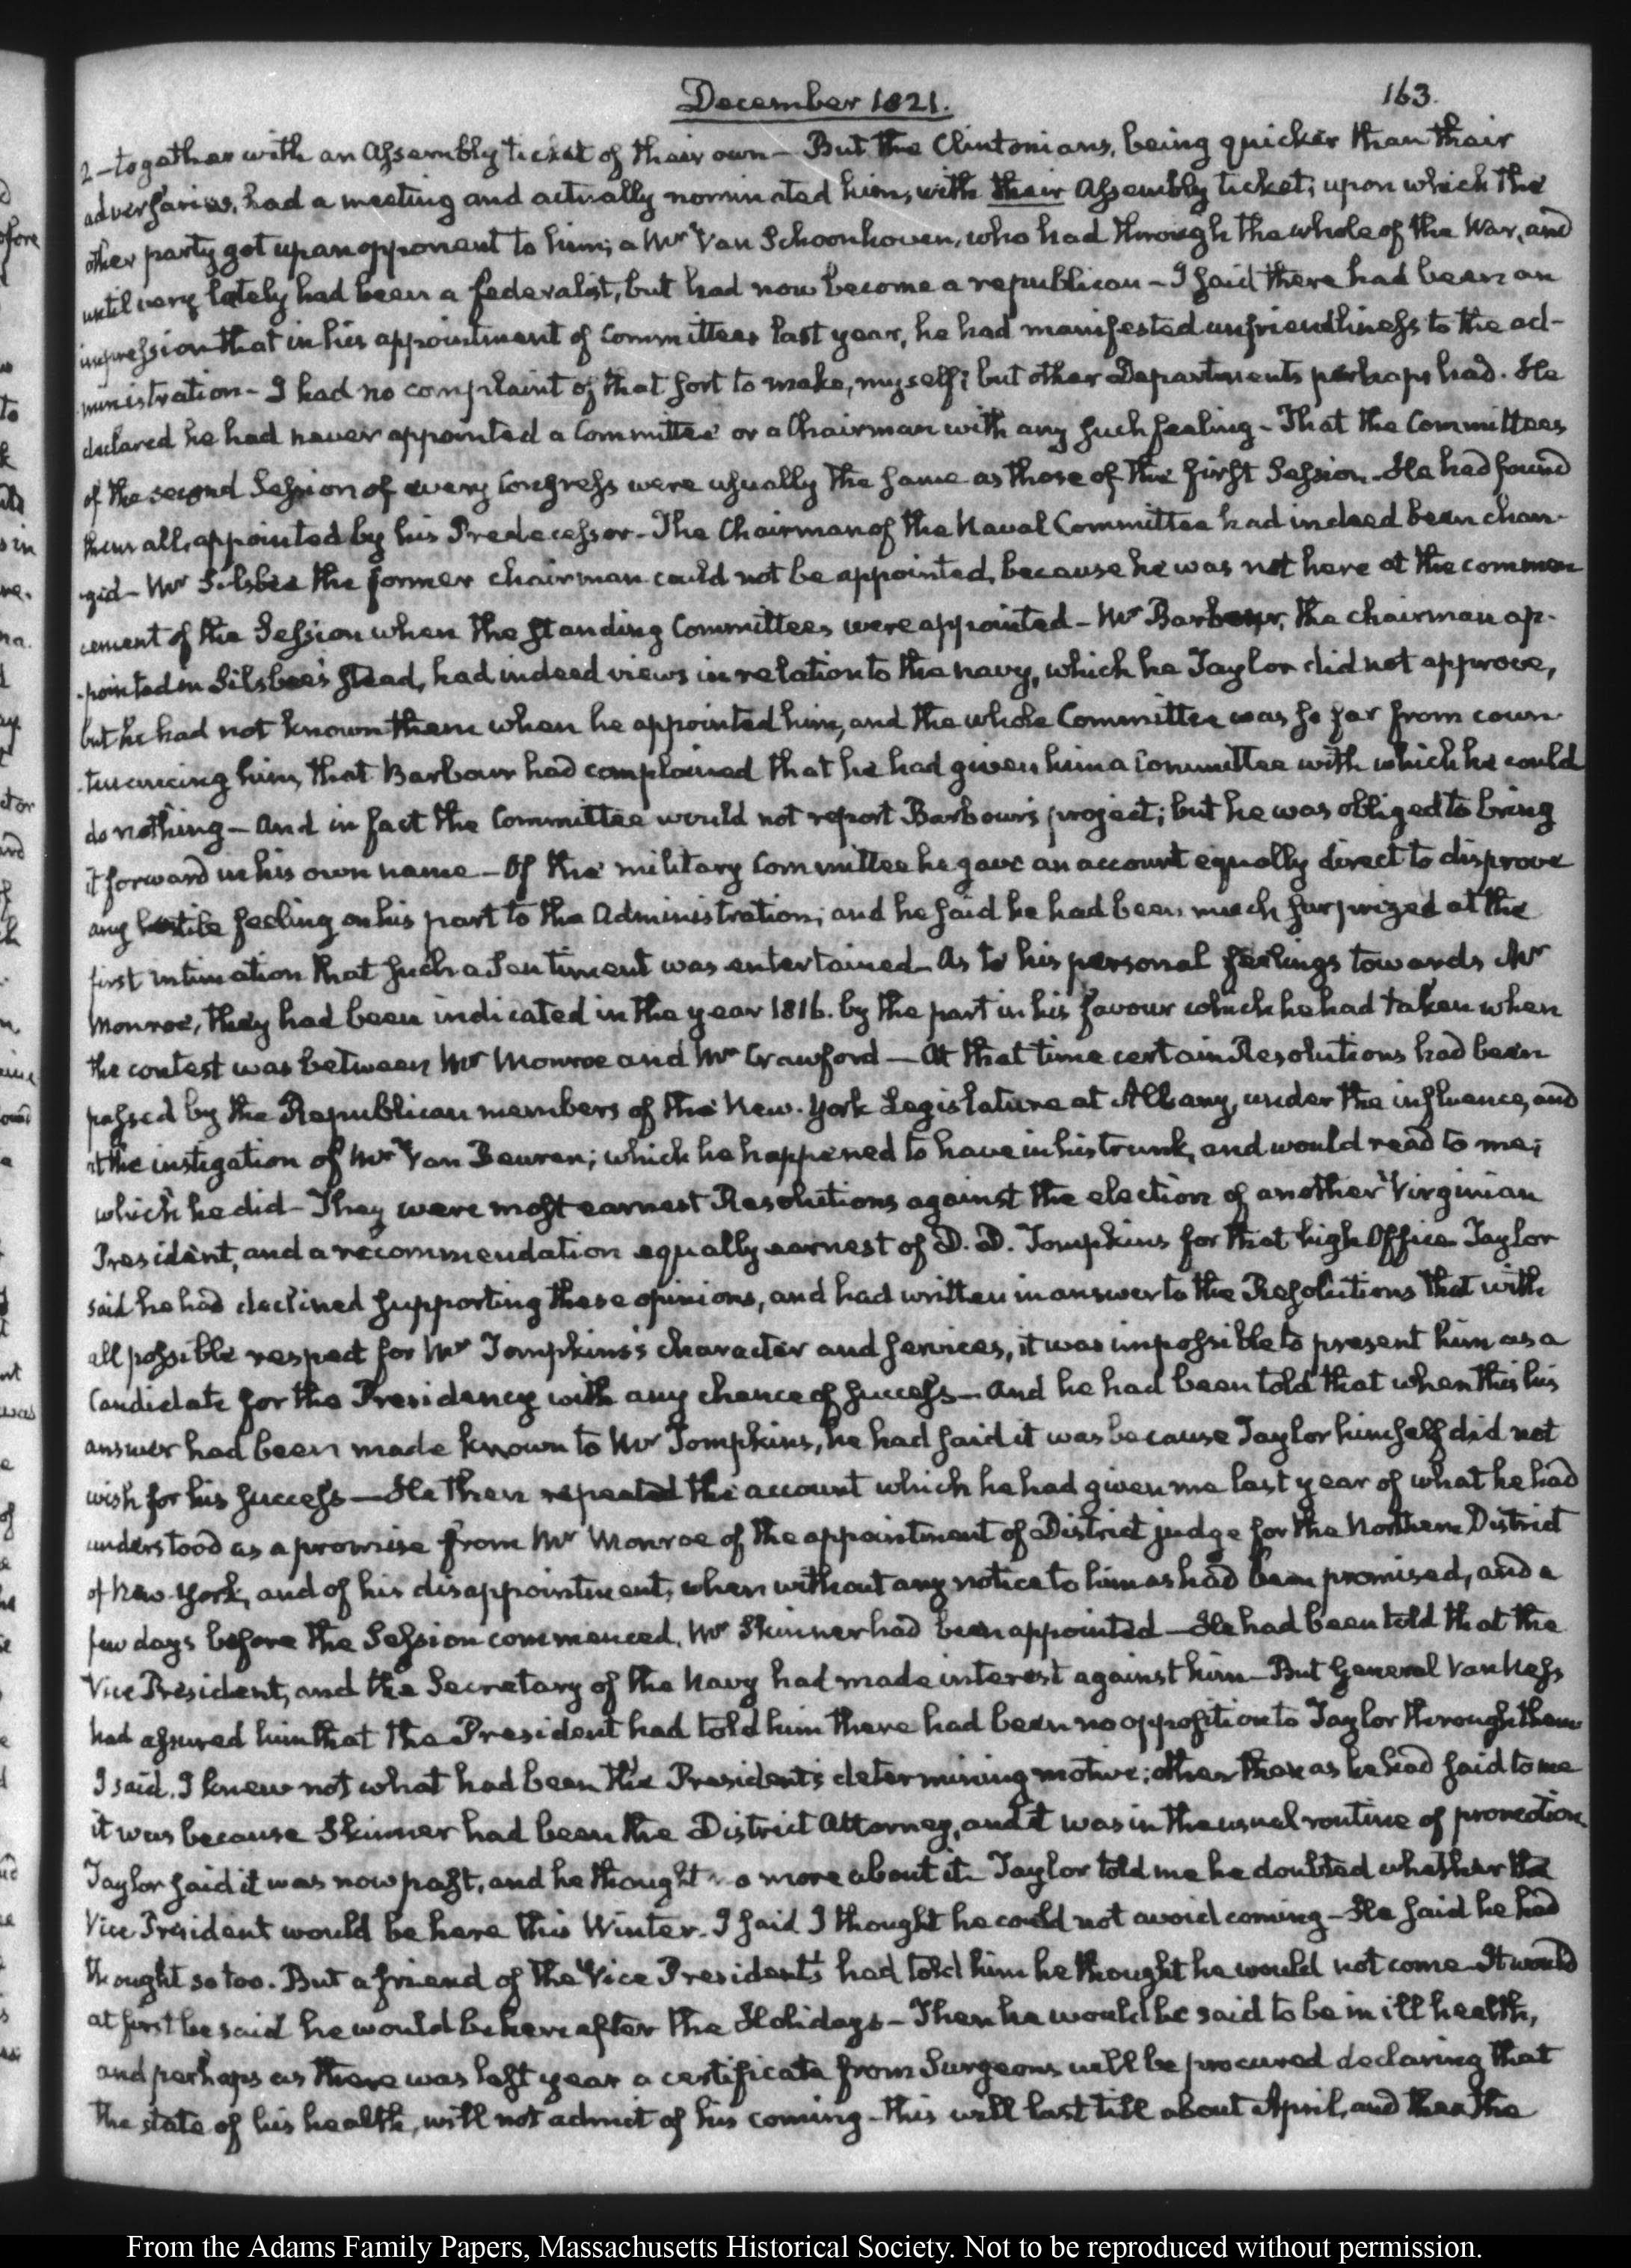 December 1821.
163.
2—together with an Assembly ticket of their own — But the Clintonians, being quicker than their
adversaries, had a meeting and actually nominated him, with their Assembly ticket; upon which the
other party got up an opponent to him; a Mr Van Schoonhoven, who had through the whole of the War, and
until very lately had been a federalist, but had now become a republican — I said there had been an
impression that in his appointment of Committees last year, he had manifested unfriendliness to the ad-
ministration — I had no complaint of that sort to make, myself; but other Departments perhaps had. He
declared he had never appointed a Committee or a Chairman with any such feeling — That the Committees
of the second Session of every Congress were usually the same as those of the first Session. He had found
them all, appointed by his Predecessor — The Chairman of the Naval Committee had indeed been chan-
-ged — Mr Silsbee the former chairman could not be appointed, because he was not here at the commen
cement of the Session when the standing Committees were appointed — Mr Barbour, the chairman ap-
-pointed in Silsbee's stead, had indeed views in relation to the navy, which he Taylor did not approve,
but he had not known them when he appointed him, and the whole Committee was so far from coun-
-tenancing him, that Barbour had complained that he had given him a Committee with which he could
do nothing — And in fact the Committee would not report Barbour's project; but he was obliged to bring
it forward in his own name — Of the military Committee he gave an account equally direct to disprove
any hostile feeling on his part to the Administration; and he said he had been much surprized at the
first intimation that such a Sentiment was entertained — As to his personal feelings towards Mr
Monroe, they had been indicated in the year 1816. by the part in his favour which he had taken when
the contest was between Mr Monroe and Mr Crawford — At that time certain Resolutions had been
passed by the Republican members of the New-York Legislature at Albany, under the influence, and
at the instigation of Mr Van Beuren; which he happened to have in his trunk, and would read to me;
which he did — They were most earnest Resolutions against the election of another Virginian
President, and a recommendation equally earnest of D. D. Tompkins for that high Office Taylor
said he had declined supporting these opinions, and had written in answer to the Resolutions that with
all possible respect for Mr Tompkins's character and services, it was impossible to present him as a
Candidate for the Presidency with any chance of success — And he had been told that when this his
answer had been made known to Mr Tompkins, he had said it was because Taylor himself did not
wish for his success — He then repeated the account which he had given me last year of what he had
understood as a promise from Mr Monroe of the appointment of District judge for the Northern District
of New-York, and of his disappointment, when without any notice to him as had been promised, and a
few days before the Session commenced, Mr Skinner had been appointed — He had been told that the
Vice President, and the Secretary of the Navy had made interest against him — But General Van Ness
had assured him that the President had told him there had been no opposition to Taylor through them
I said, I knew not what had been the President's determining motive; other than as he had said to me
it was because Skinner had been the District Attorney, and it was in the usual routine of promotion.
Taylor said it was now past, and he thought no more about it. Taylor told me he doubted whether the
Vice President would be here this Winter. I said I thought he could not avoid coming — He said he had
thought so too. But a friend of the Vice President's had told him he thought he would not come — It would
at first be said he would be here after the Holidays — Then he would be said to be in ill health,
and perhaps as there was last year a certificate from Surgeons will be procured declaring that
the state of his health, will not admit of his coming — this will last till about April, and then the
From the Adams Family Papers, Massachusetts Historical Society. Not to be reproduced without permission.